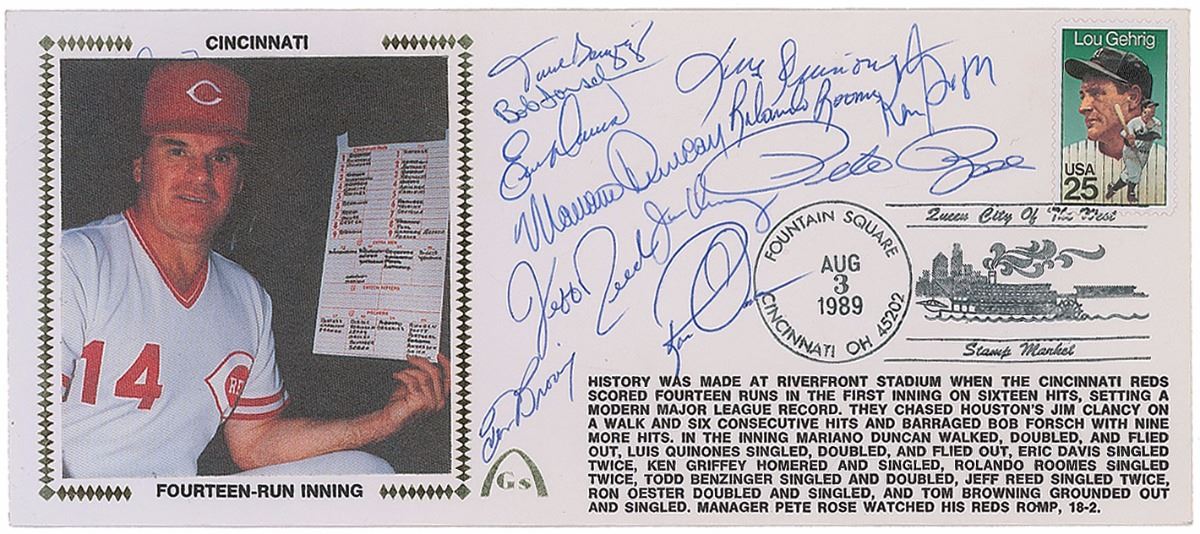 CINCINNATI
14
REDS
Cincinnati Reds
FOURTEEN-RUN INNING
Bob Forsch
Eric Davis
Mariano Duncan
Jeff Reed
Luis Quinones
Rolando Roomes
Pete Rose
Jim Clancy
Ron Oester
Tom Browning
Lou Gehrig
USA
25
Queen City Of The West
FOUNTAIN SQUARE
AUG
3
1989
CINCINNATI OH 45202
Stamp Market
Gs
HISTORY WAS MADE AT RIVERFRONT STADIUM WHEN THE CINCINNATI REDS
SCORED FOURTEEN RUNS IN THE FIRST INNING ON SIXTEEN HITS, SETTING A
MODERN MAJOR LEAGUE RECORD. THEY CHASED HOUSTON'S JIM CLANCY ON
A WALK AND SIX CONSECUTIVE HITS AND BARRAGED BOB FORSCH WITH NINE
MORE HITS. IN THE INNING MARIANO DUNCAN WALKED, DOUBLED, AND FLIED
OUT, LUIS QUINONES SINGLED, DOUBLED, AND FLIED OUT, ERIC DAVIS SINGLED
TWICE, KEN GRIFFEY HOMERED AND SINGLED, ROLANDO ROOMES SINGLED
TWICE, TODD BENZINGER SINGLED AND DOUBLED, JEFF REED SINGLED TWICE,
RON OESTER DOUBLED AND SINGLED, AND TOM BROWNING GROUNDED OUT
AND SINGLED. MANAGER PETE ROSE WATCHED HIS REDS ROMP, 18-2.